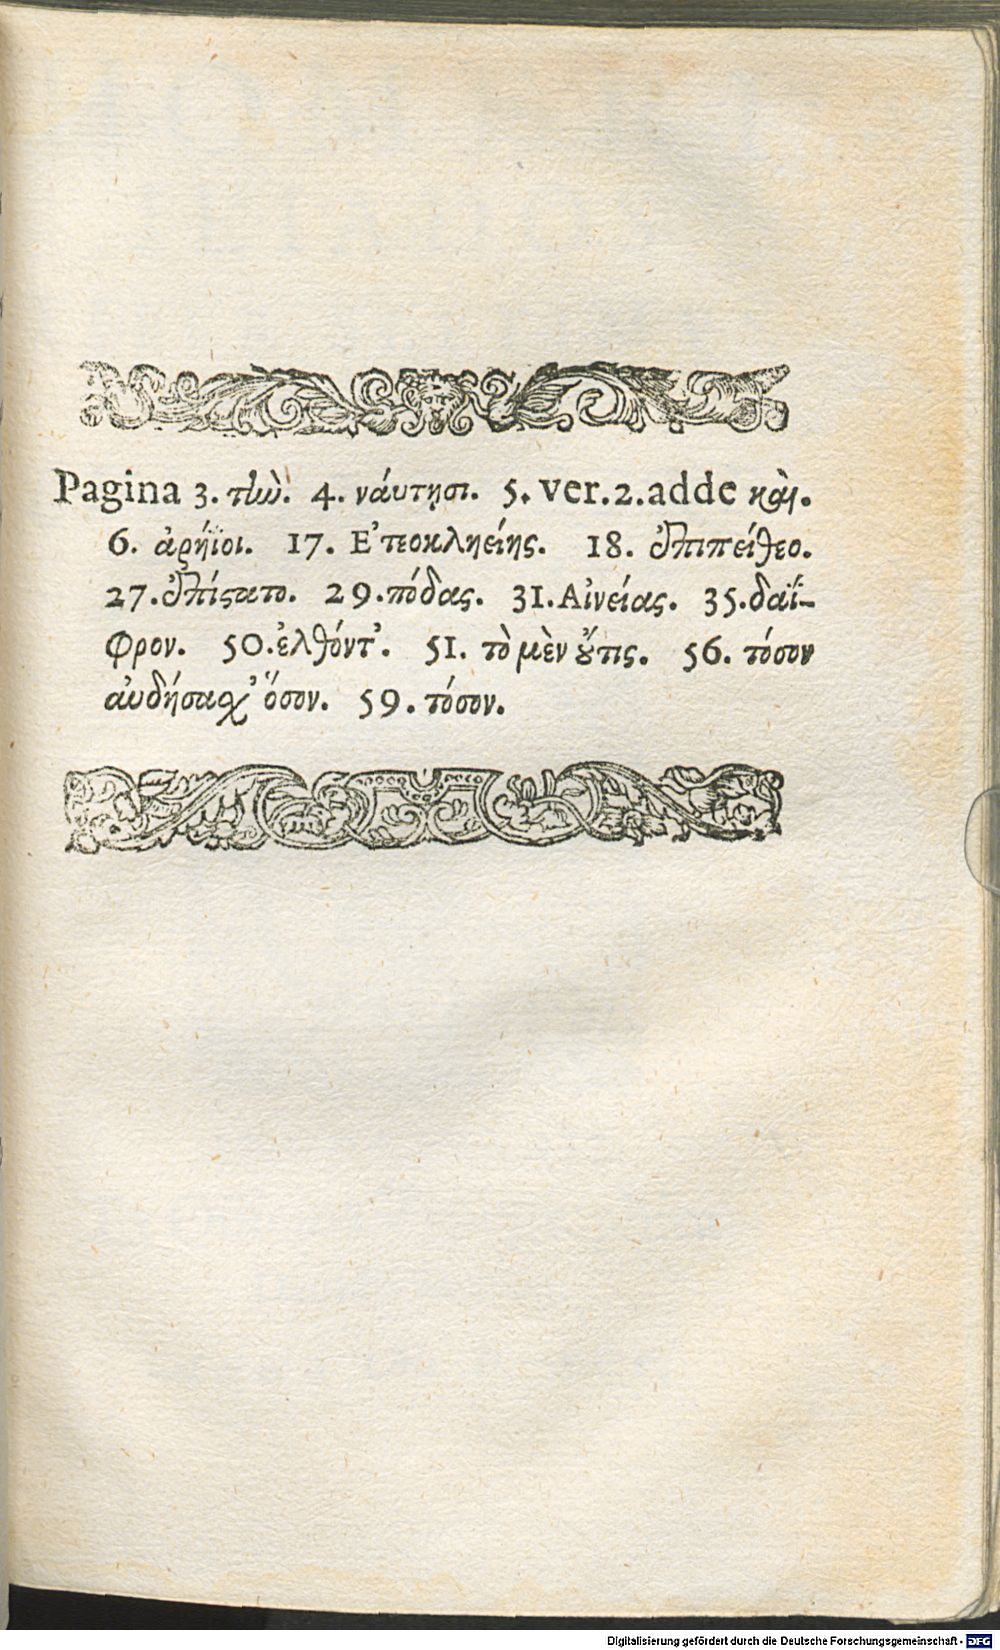 Pagina 3. τἰὼ. 4. νάυτῃσι. 5. ver.2.adde καὶ.
6. ἀρήϊοι. 17. Ε᾽τεοκληείης. 18. ἐπιπείθεο.
27.ἐπίστατο. 29.πόδας. 31.Αἰνείας. 35.δαΐ-
φρον. 50.ἐλθόντ᾽. 51. τὸ μὲν οὔτις. 56. τόσον
ἀυδήσαχ᾽ ὅσον. 59. τόσον.
Digitalisierung gefördert durch die Deutsche Forschungsgemeinschaft - DFG